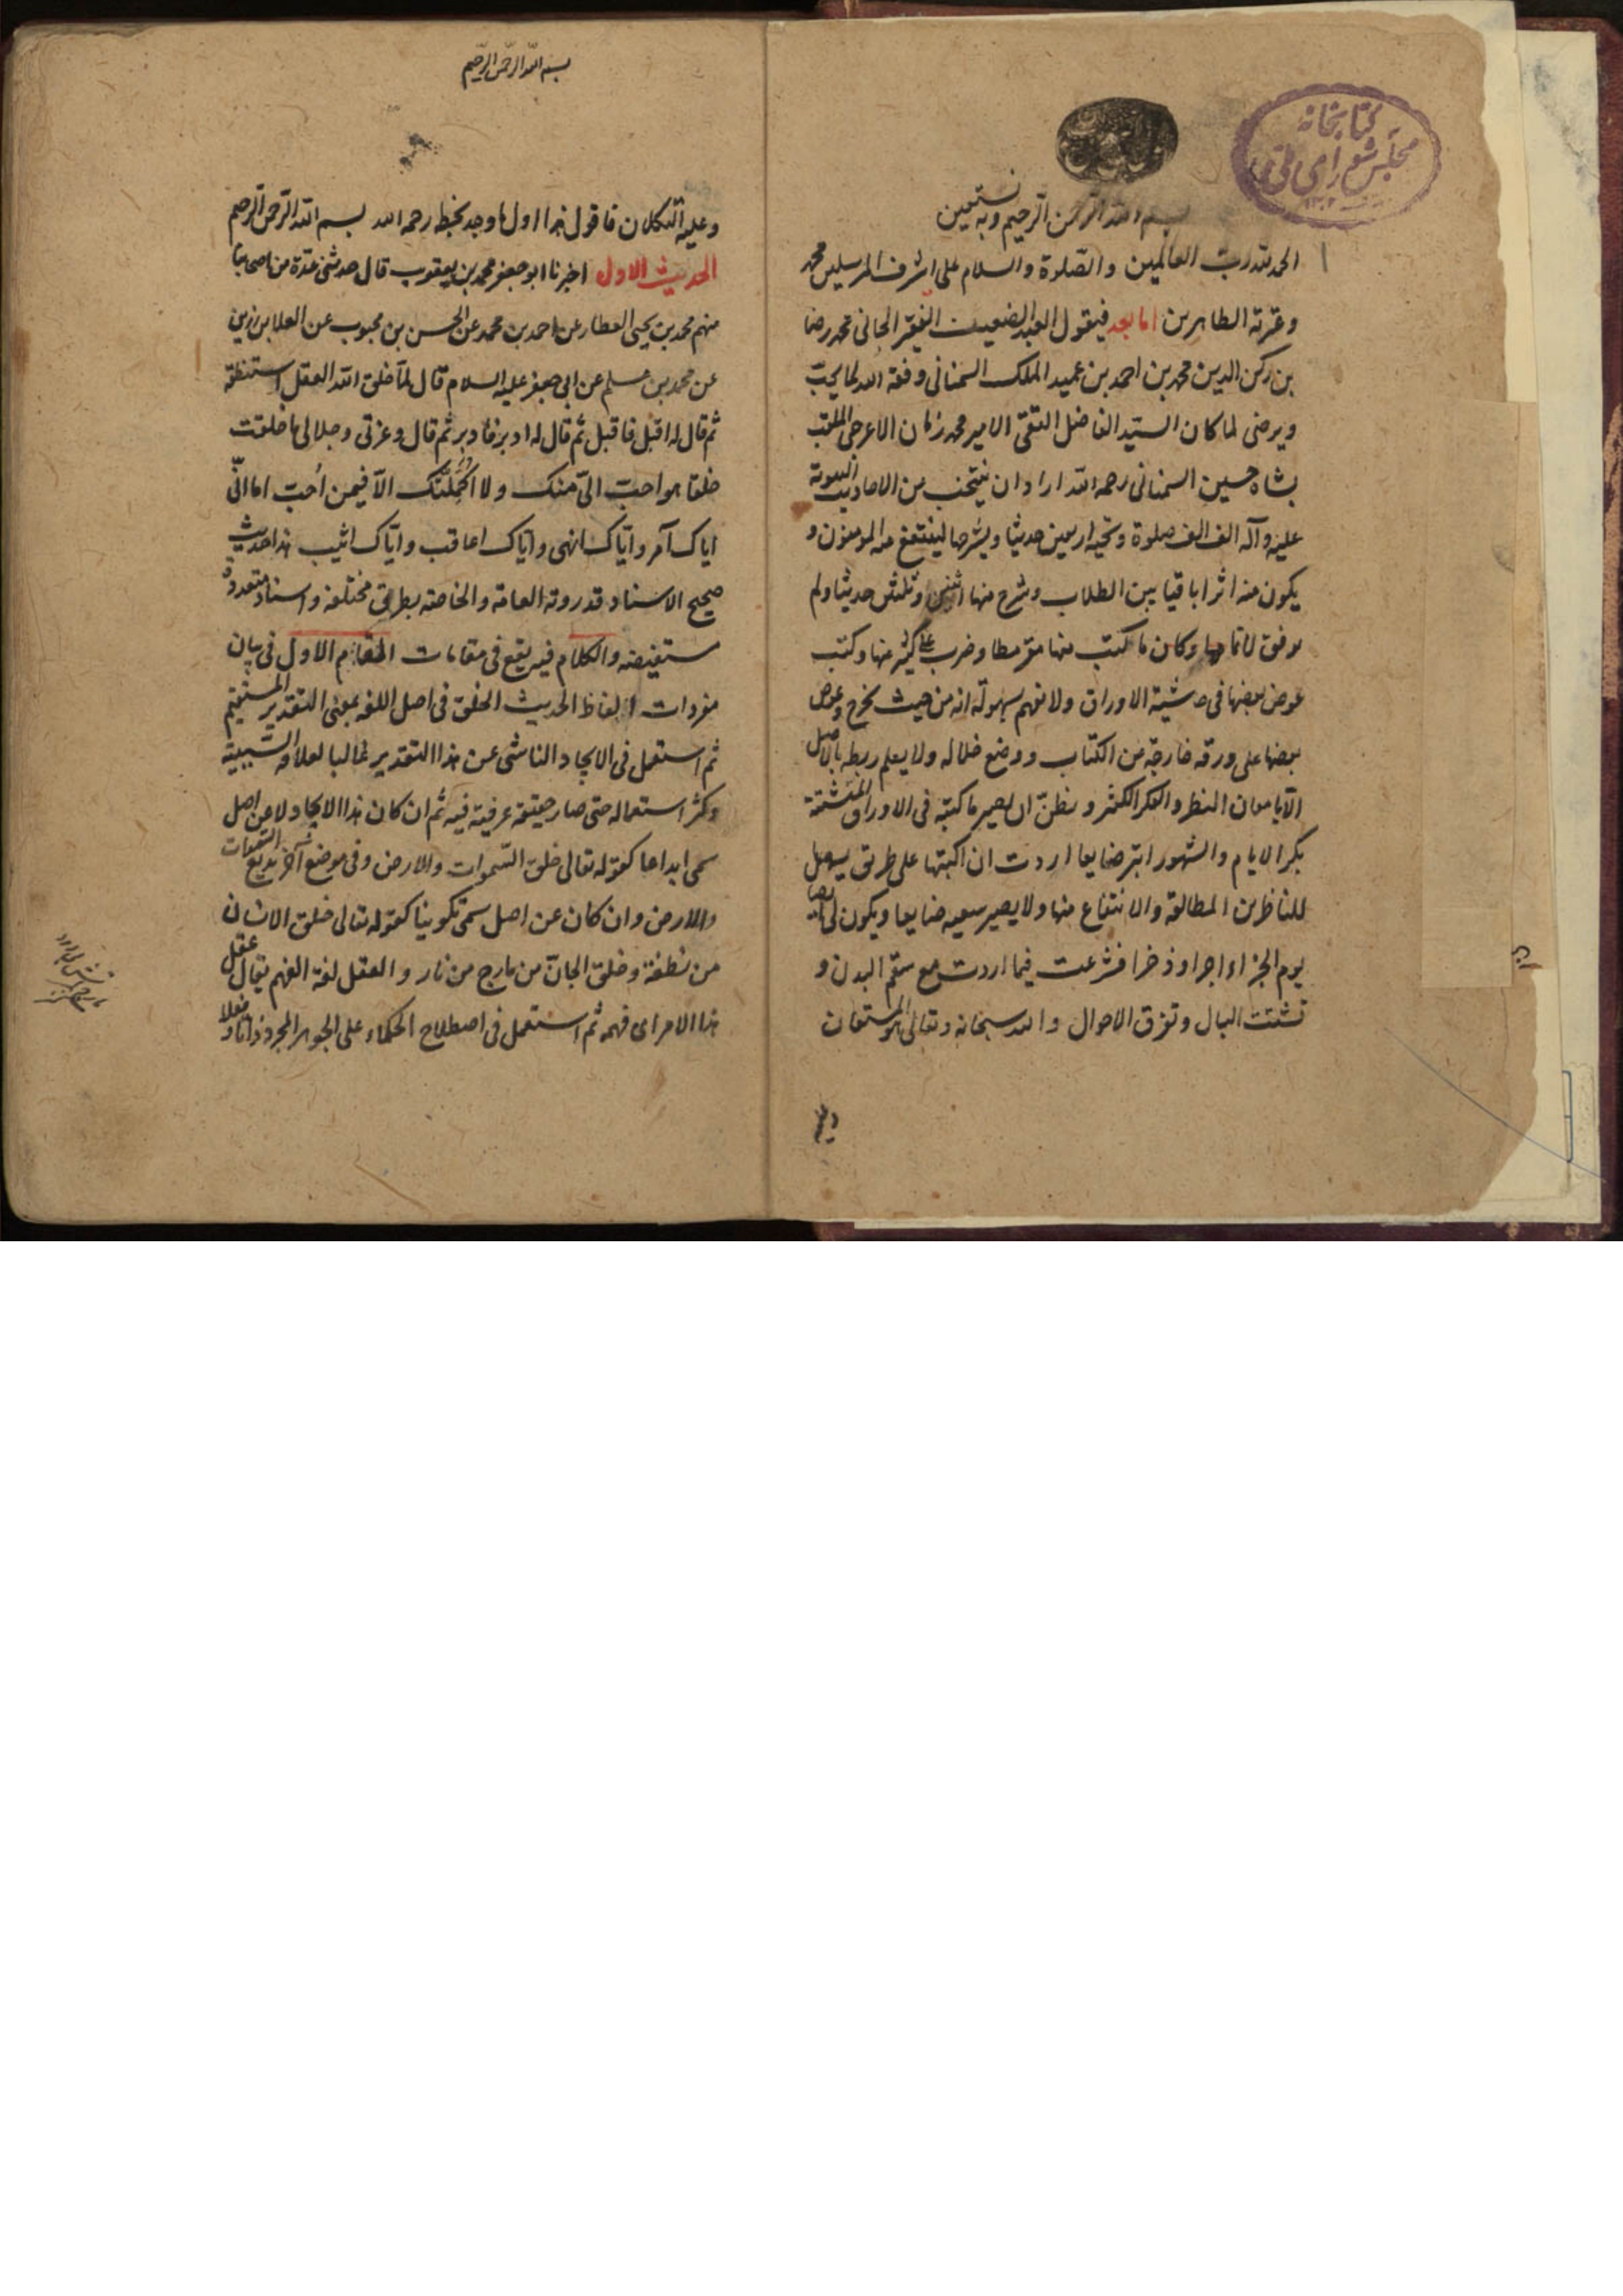 كتابخانه
مجلس شورای ملی
بسم الله الرحمن الرحيم وبه نستعين
الحمد لله رب العالمين والصلوة والسلام على اشرف المرسلين محمد
وعترته الطاهرين اما بعد فيقول العبد الضعيف الفقير الجانى محمد رضا
بن ركن الدين محمد بن احمد بن عميد الملك السمنانى وفقه الله لما يحب
ويرضى لما كان السيد الفاضل التقى الامير محمد زمان الاعرجى الملقب
بشاه حسين السمنانى رحمه الله اراد ان ينتخب من الاحاديث النبوية
عليه وآله الف الف صلوة وتحية اربعين حديثا ويشرحها لينتفع منه المومنون و
يكون منه اثرا باقيا بين الطلاب وشرح منها اثنين وثلثين حديثا ولم
يوفق لاتمامها وكان ما كتب منها مقرمطا وضرب على كثير منها وكتب
عوض بعضها فى حاشية الاوراق ولا يفهم بسهولة انه من حيث يخرج وعوض
بعضها على ورقة خارجة من الكتاب ووضع خلاله ولا يعلم ربطه بالاصل
الا بامعان النظر والفكر الكثير ويظن ان يصير ما كتبه فى الاوراق المتشتتة
بكر الايام والشهور ابتر ضايعا اردت ان اكتبها على طريق يسهل
للناظرين المطالعة والانتفاع منها ولا يصير سعيه ضايعا ويكون لى ايضا
يوم الجزاء اجرا وذخرا فشرعت فيما اردت مع سقم البدن و
تشتت البال وتفرق الاحوال والله سبحانه وتعالى هو المستعان
وعليه
بسم الله الرحمن الرحيم
وعليه التكلان فاقول هذا اول ما وجد بخطه رحمه الله بسم الله الرحمن الرحيم
الحديث الاول اخبرنا ابو جعفر محمد بن يعقوب قال حدثنى عدة من اصحابنا
منهم محمد بن يحيى العطار عن احمد بن محمد عن الحسن بن محبوب عن العلا بن رزين
عن محمد بن مسلم عن ابى جعفر عليه السلام قال لما خلق الله العقل استنطقه
ثم قال له اقبل فاقبل ثم قال له ادبر فادبر ثم قال وعزتى وجلالى ما خلقت
خلقا هو احب الىّ منك ولا اكملتك الا فيمن اُحب اما انّى
اياك آمر واياك انهى واياك اعاقب واياك اثيب هذا حديث
صحيح الاسناد قد روته العامة والخاصة بطرق مختلفة واسناد متعددة
مستفيضة والكلام فيه يقع فى مقامات المقام الاول فى بيان
مفردات الفاظ الحديث الخلق فى اصل اللغه بمعنى التقدير المستقيم
ثم استعمل فى الايجاد الناشى عن هذا التقدير غالبا لعلاقه السببية
وكثر استعماله حتى صار حقيقة عرفية فيه ثم ان كان هذا الايجاد لا عن اصل
سمى ابداعا كقوله تعالى خلق السموات والارض وفى موضع آخر بديع السموات
والارض وان كان عن اصل سمى تكوينا كقوله تعالى خلق الانسان
من نطفة وخلق الجان من مارج من نار والعقل لغة الفهم يقال عقل
هذا الامر اى فهمه ثم استعمل فى اصطلاح الحكماء على الجوهر المجرد ذاتا وفعلا